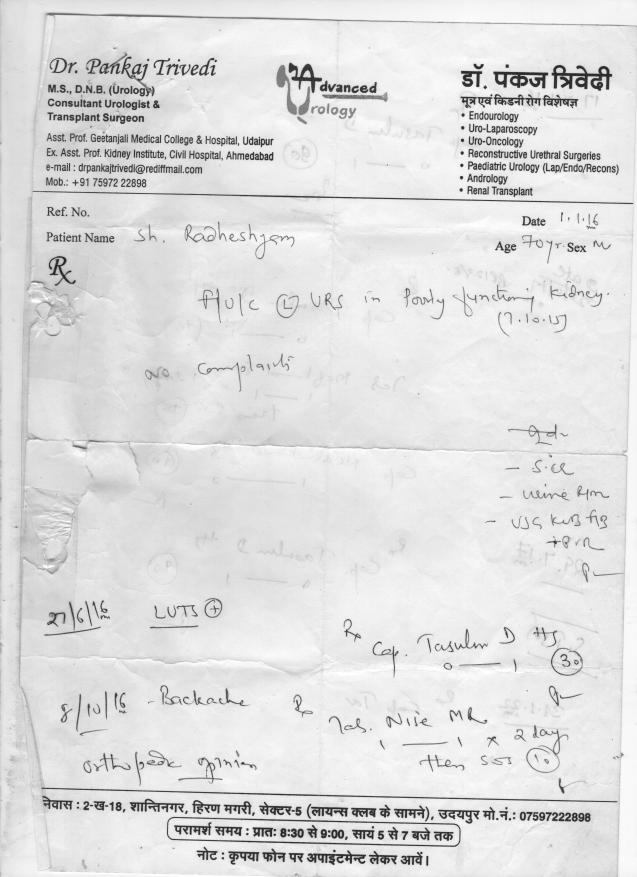 Dr. Pankaj Trivedi
M.S., D.N.B. (Urology)
Consultant Urologist &
Transplant Surgeon
Asst. Prof. Geetanjali Medical College & Hospital, Udaipur
Ex. Asst. Prof. Kidney Institute, Civil Hospital, Ahmedabad
e-mail : drpankajtrivedi@rediffmail.com
Mob.: +91 75972 22898
Advanced
Urology
डॉ. पंकज त्रिवेदी
मूत्र एवं किडनी रोग विशेषज्ञ
• Endourology
• Uro-Laparoscopy
• Uro-Oncology
• Reconstructive Urethral Surgeries
• Paediatric Urology (Lap/Endo/Recons)
• Andrology
• Renal Transplant
Ref. No.
Date 1.1.16
Patient Name Sh. Radheshyam
Age 70yr. Sex M
Rx
F/U/C (L) URS in Poorly functioning Kidney.
(7.10.15)
No Complaints
- S.cr
- Urine R/m
- USG KUB
27/6/16 LUTS (+)
Rx Cap. Tasulin D HS
0 — 1 (30)
8/10/16 - Backache
Rx Tab. Nise MR
1 — 1 x 2 day
Orthopedic opinion
then SOS (10)
निवास : 2-ख-18, शान्तिनगर, हिरण मगरी, सेक्टर-5 (लायन्स क्लब के सामने), उदयपुर मो.नं.: 07597222898
परामर्श समय : प्रातः 8:30 से 9:00, सायं 5 से 7 बजे तक
नोट : कृपया फोन पर अपाइंटमेन्ट लेकर आवें।